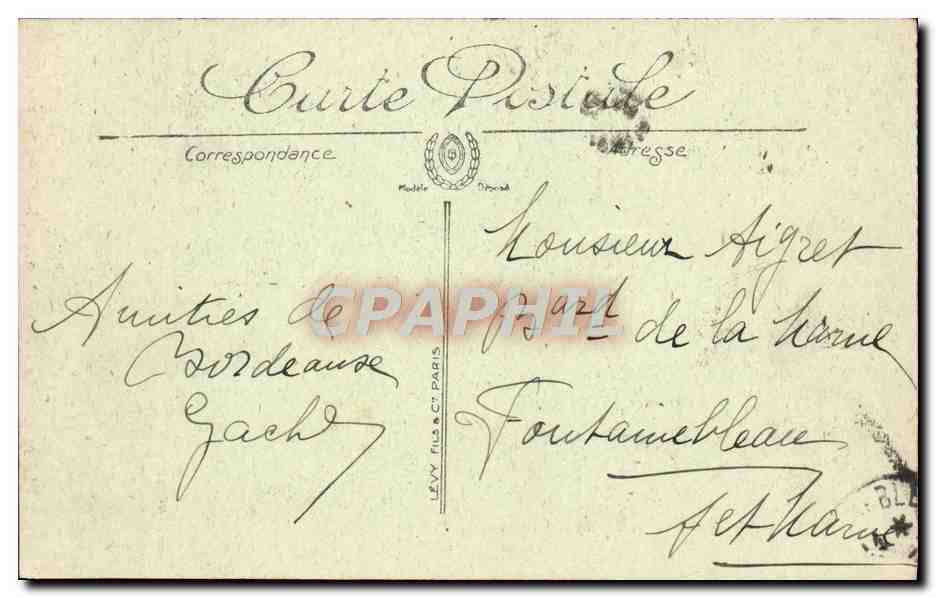 Carte Postale
Correspondance
Adresse
Modèle Déposé
Monsieur Aigret
Bard de la Marne
Fontainebleau
S et Marne
Amitiés de
Bordeaux
LÉVY FILS & Cie PARIS
CPAPHIL
BLE